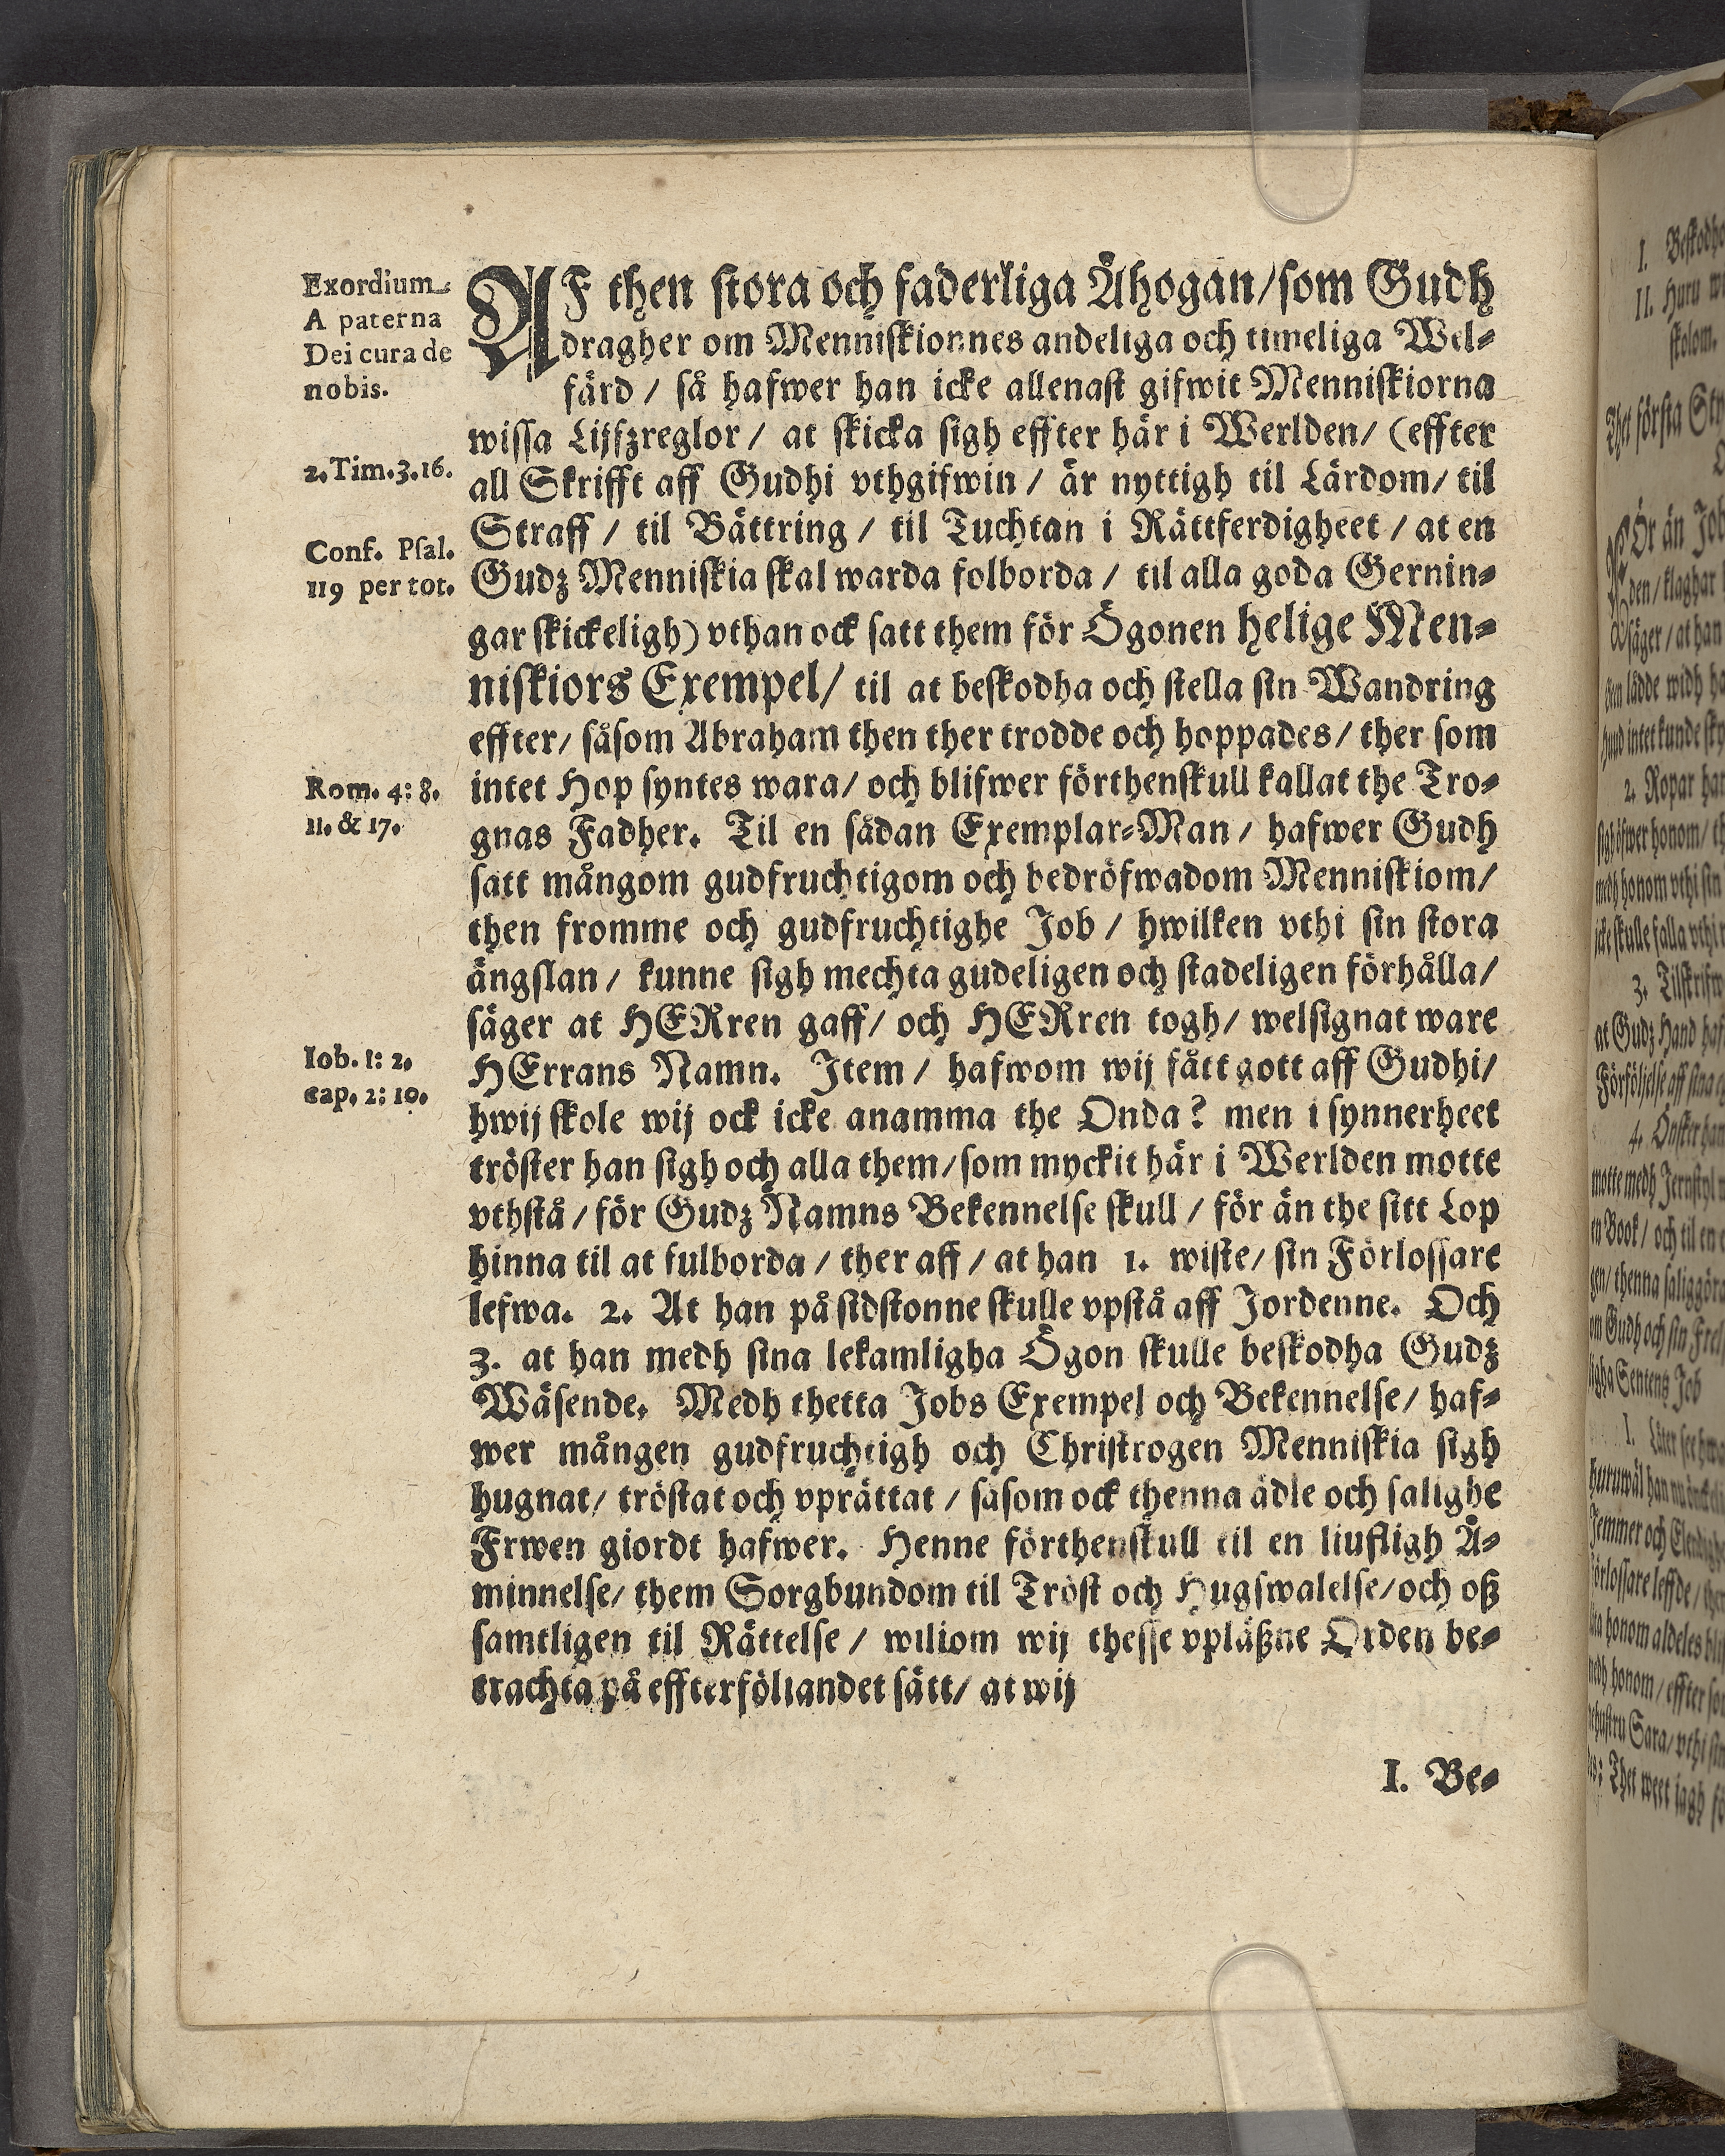 Exordium
A paterna
Dei cura de
nobis.
2. Tim. 3. 16.
Conf. Psal.
119 per tot.
Rom. 4: 8.
11. & 17.
Iob. 1: 2.
cap. 2: 10.
AF then stora och faderliga Åhogan/ som Gudh
dragher om Menniskionnes andeliga och timeliga Wel-
färd / så hafwer han icke allenast gifwit Menniskiorna
wissa Lijfzreglor / at skicka sigh effter här i Werlden/ (effter
all Skrifft aff Gudhi vthgifwin / är nyttigh til Lärdom/ til
Straff / til Bättring / til Tuchtan i Rättferdigheet / at en
Gudz Menniskia skal warda folborda / til alla goda Gernin-
gar skickeligh) vthan ock satt them för Ögonen helige Men-
niskiors Exempel/ til at beskodha och stella sin Wandring
effter/ såsom Abraham then ther trodde och hoppades/ ther som
intet Hop syntes wara/ och blifwer förthenskull kallat the Tro-
gnas Fadher. Til en sådan Exemplar-Man / hafwer Gudh
satt mångom gudfruchtigom och bedröfwadom Menniskiom/
then fromme och gudfruchtighe Job / hwilken vthi sin stora
ängslan / kunne sigh mechta gudeligen och stadeligen förhålla/
säger at HERren gaff/ och HERren togh/ welsignat ware
HErrans Namn. Item / hafwom wij fått gott aff Gudhi/
hwij skole wij ock icke anamma the Onda? men i synnerheet
tröster han sigh och alla them/ som myckit här i Werlden motte
vthstå / för Gudz Namns Bekennelse skull / för än the sitt Lop
hinna til at fulborda / ther aff / at han 1. wiste/ sin Förlossare
lefwa. 2. At han på sidstonne skulle vpstå aff Jordenne. Och
3. at han medh sina lekamligha Ögon skulle beskodha Gudz
Wäsende. Medh thetta Jobs Exempel och Bekennelse/ haf-
wer mången gudfruchtigh och Christrogen Menniskia sigh
hugnat/ tröstat och vprättat / såsom ock thenna ädle och salighe
Frwen giordt hafwer. Henne förthenskull til en liufligh Å-
minnelse/ them Sorgbundom til Tröst och Hugswalelse/ och oß
samtligen til Rättelse / wiliom wij thesse vpläßne Orden be-
trachta på effterföliandet sätt/ at wij
I. Be-